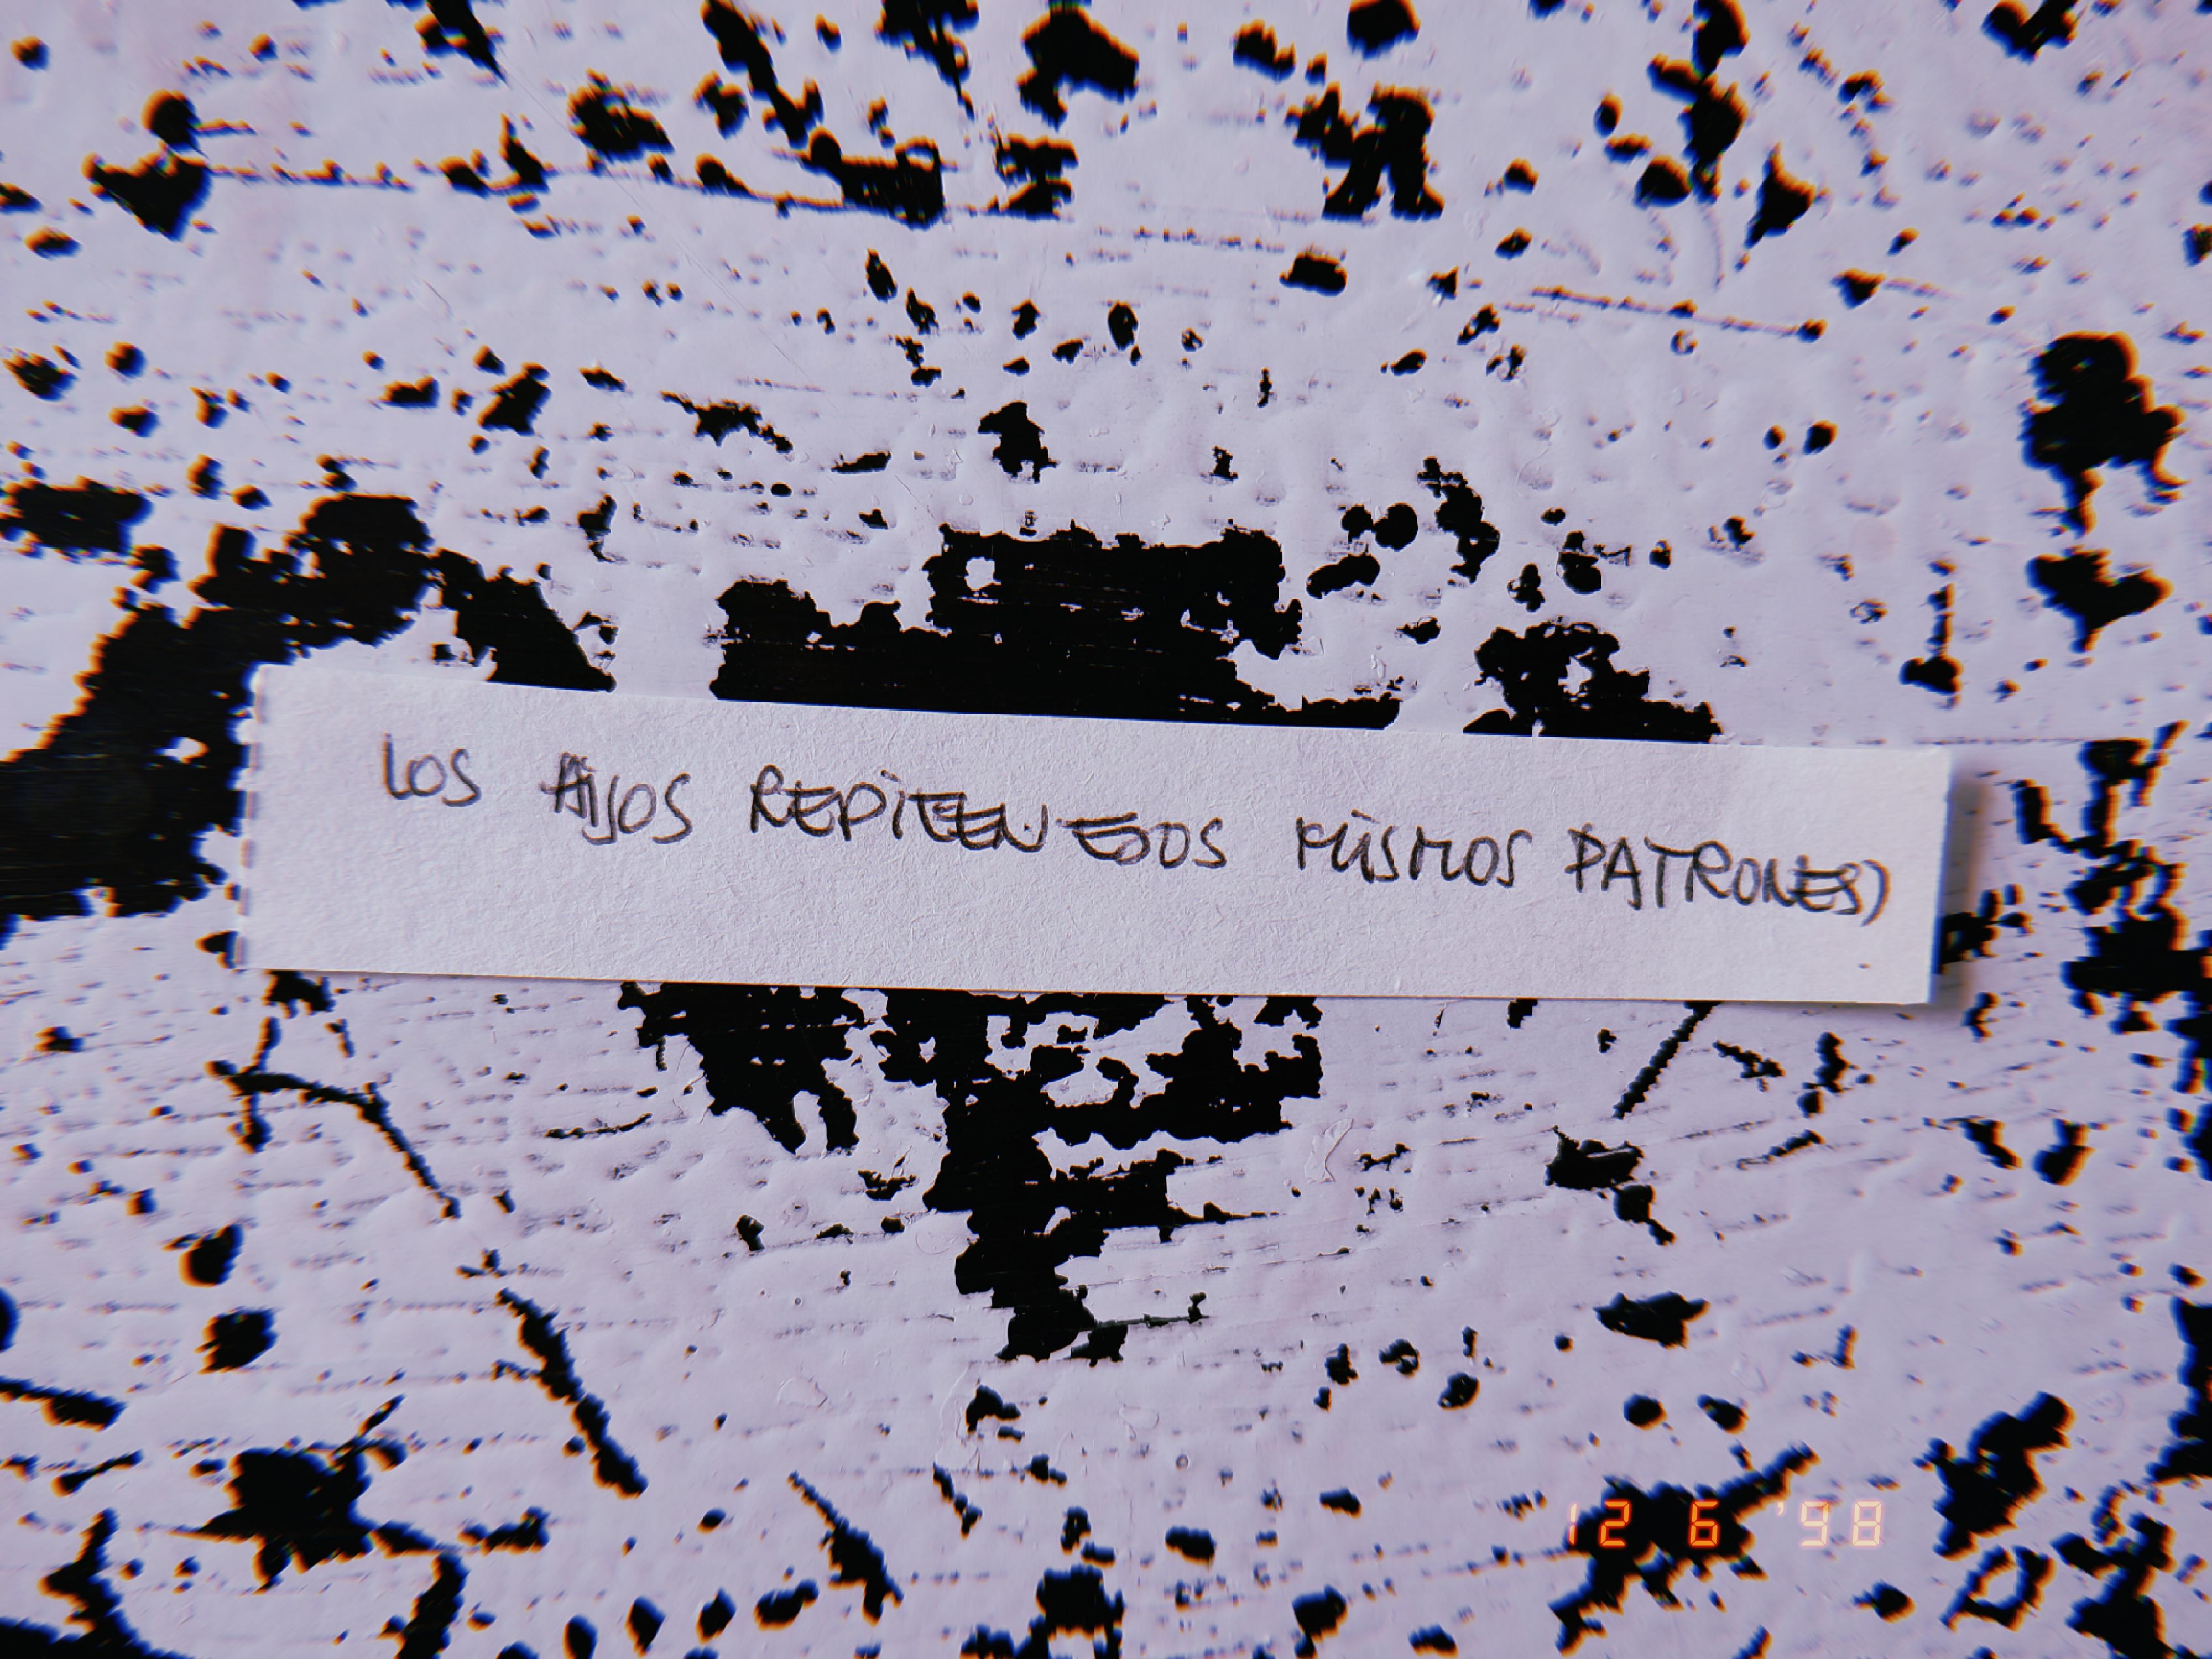 LOS HIJOS REPITEN ESOS MISMOS PATRONES)
12 6 '98